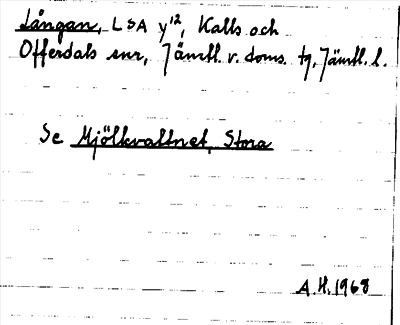 Långan, LSA y12, Kalls och
Offerdals snr, Jämtl. v. doms. tg, Jämtl. l.
Se Mjölkvattnet, Stora
A.H. 1968